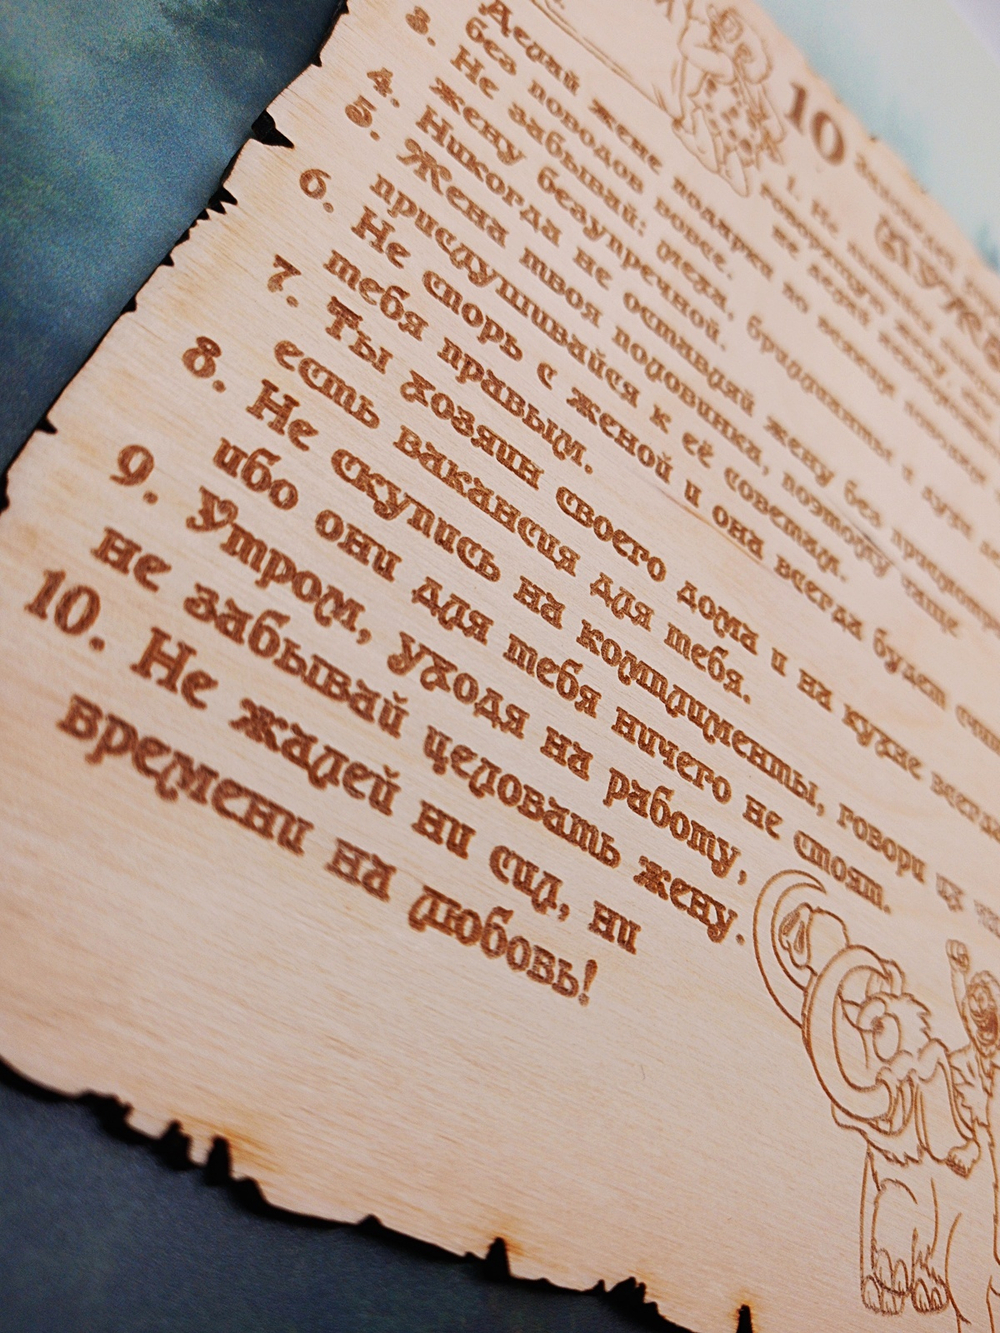 10
1. Не
Делай жене подарки по
без поводов вовсе.
3. Не забывай: меха, бриллианты и духи
жену безупречной.
4. Никогда не оставляй жену без
5. Жена твоя половинка, поэтому чаще
прислушивайся к её советам.
6. Не спорь с женой и она всегда будет
тебя правым.
7. Ты хозяин своего дома и на кухне всегда
есть вакансия для тебя.
8. Не скупись на комплименты, говори их
ибо они для тебя ничего не стоят.
9. Утром, уходя на работу,
не забывай целовать жену.
10. Не жалей ни сил, ни
времени на любовь!